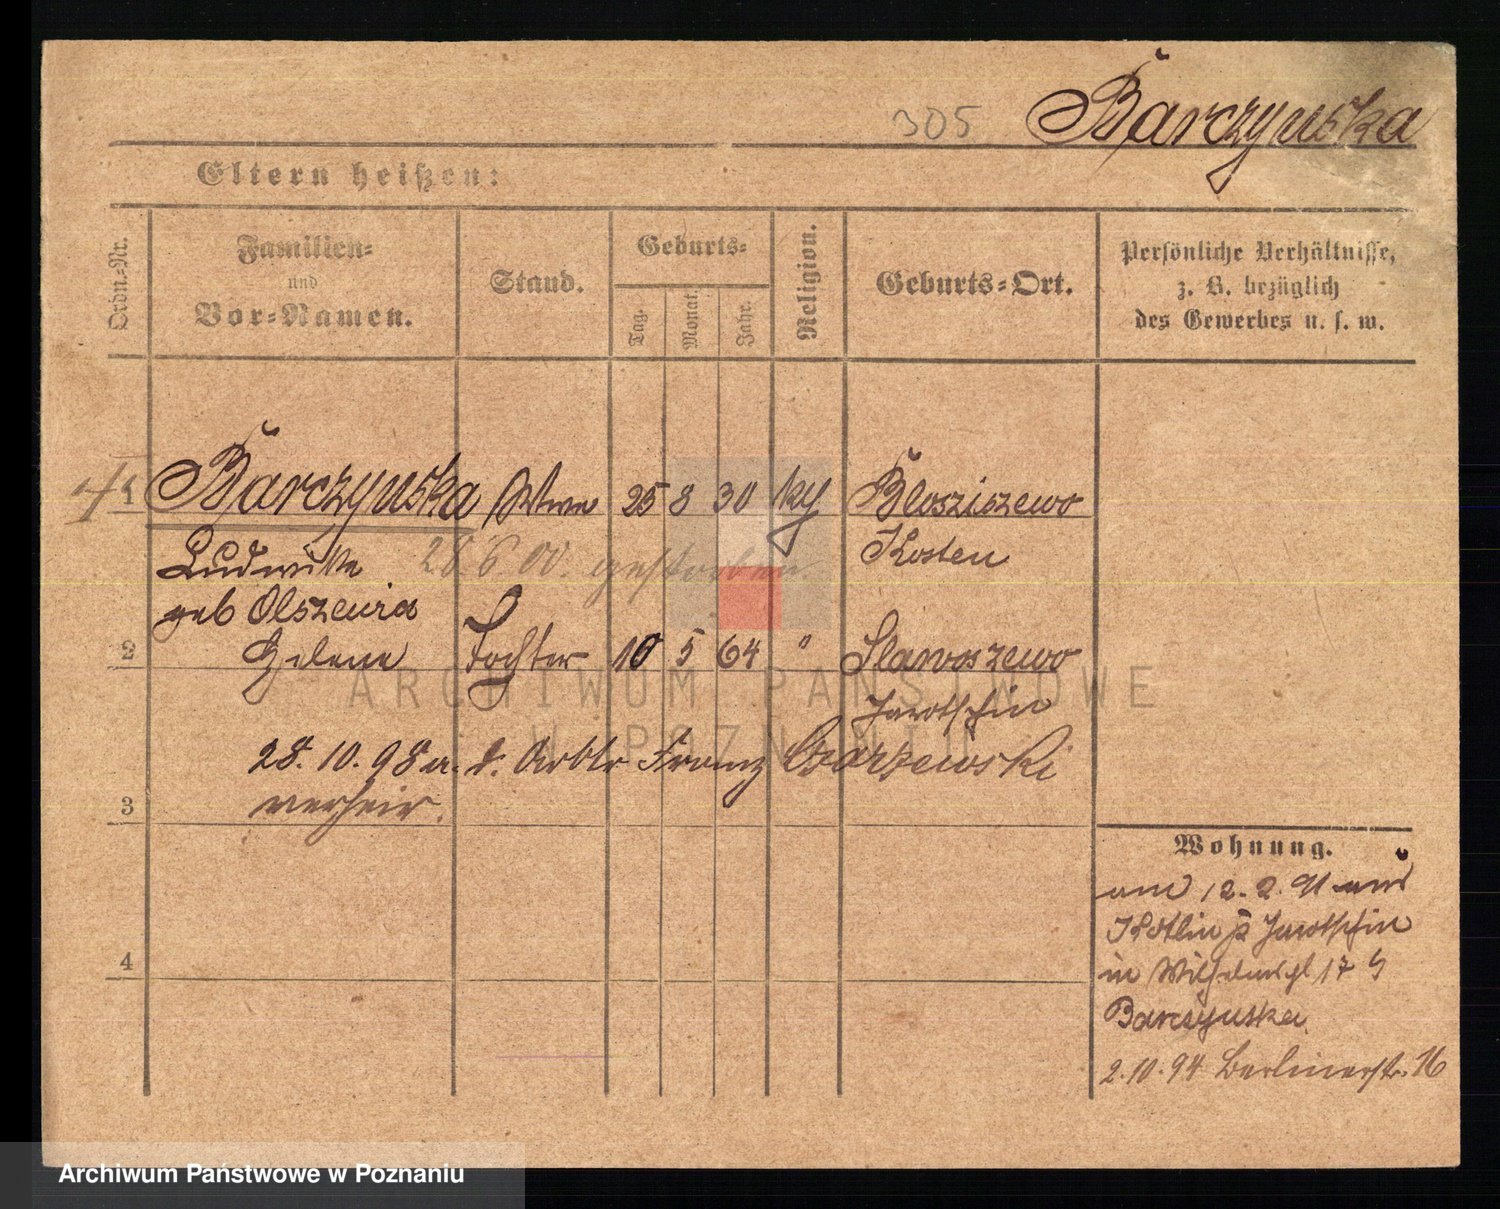 305 Barczynska
Eltern heißen:
Ordn.-Nr.
Familien-
und
Vor-Namen.
Stand.
Geburts-
Tag.
Monat.
Jahr.
Religion.
Geburts-Ort.
Persönliche Verhältnisse,
z. B. bezüglich
des Gewerbes u. s. w.
1 Barczynska Wwe 25 8 30 kg Bloszi­szewo
Ludwika 28.6.00. gestorben Kosten
geb Olszewia
2 Helene Tochter 10 5 64 " Slawoszewo
Jarotschin
28. 10. 98 a. d. Arbtr Franz Czarzewski
verheir.
3
4
Wohnung.
am 12. 2. 91 aus
Kotlin Jarotschin
in 17
Barczynska
2.10.94 Berlinerstr. 16
ARCHIWUM PAŃSTWOWE
W POZNANIU
Archiwum Państwowe w Poznaniu